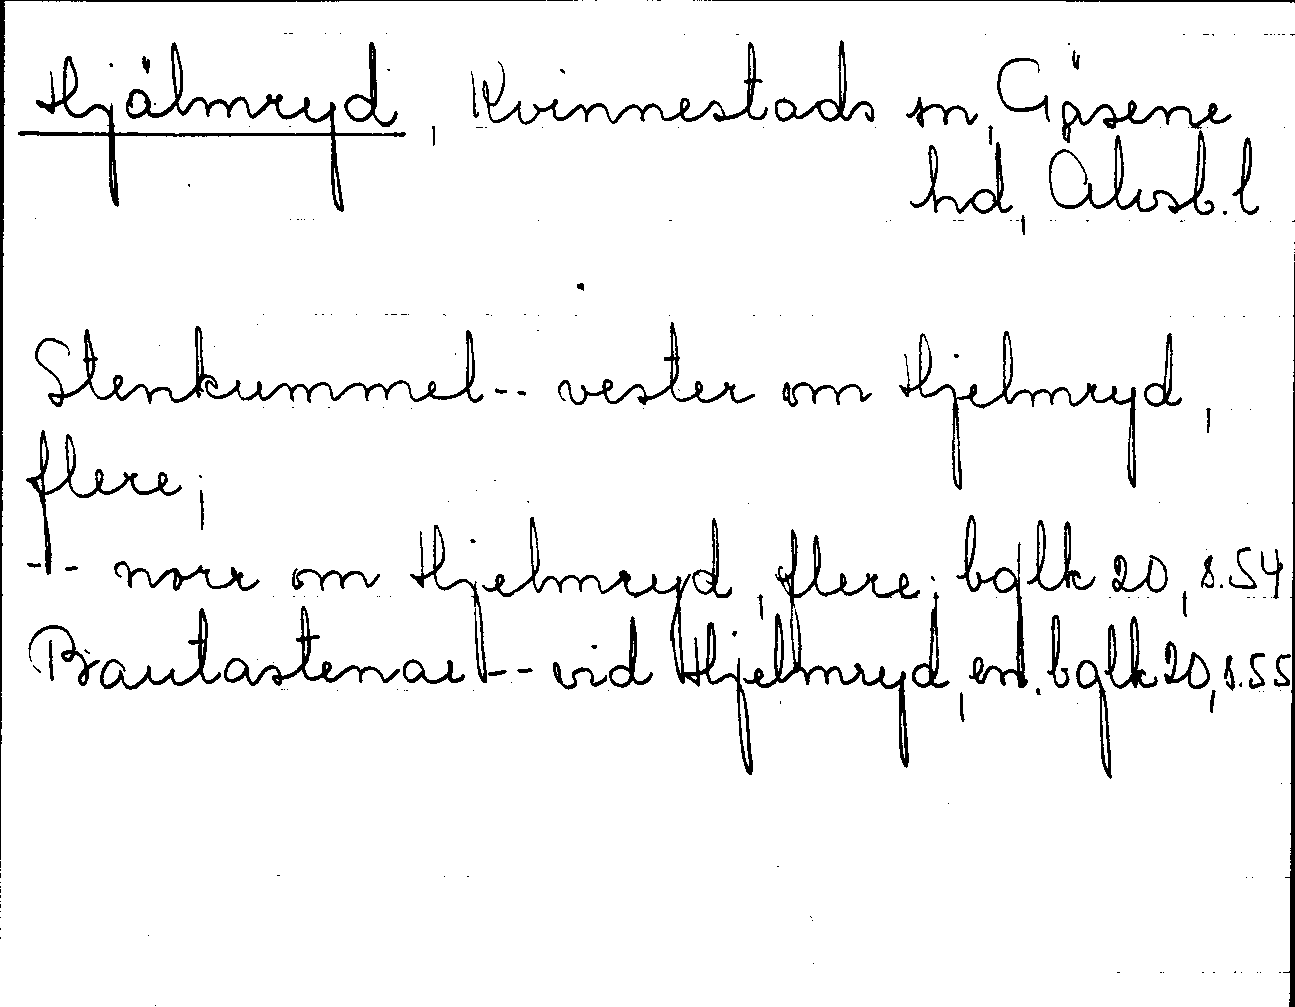 Hjälmryd, Kvinnestads sn, Gäsene
hd, Alvsb. l
Stenkummel -- vester om Hjelmryd,
flere;
-"- norr om Hjelmryd, flere; bglk 20, s.54
Bautastenar -- vid Hjelmryd, en. bglk 20, s.55